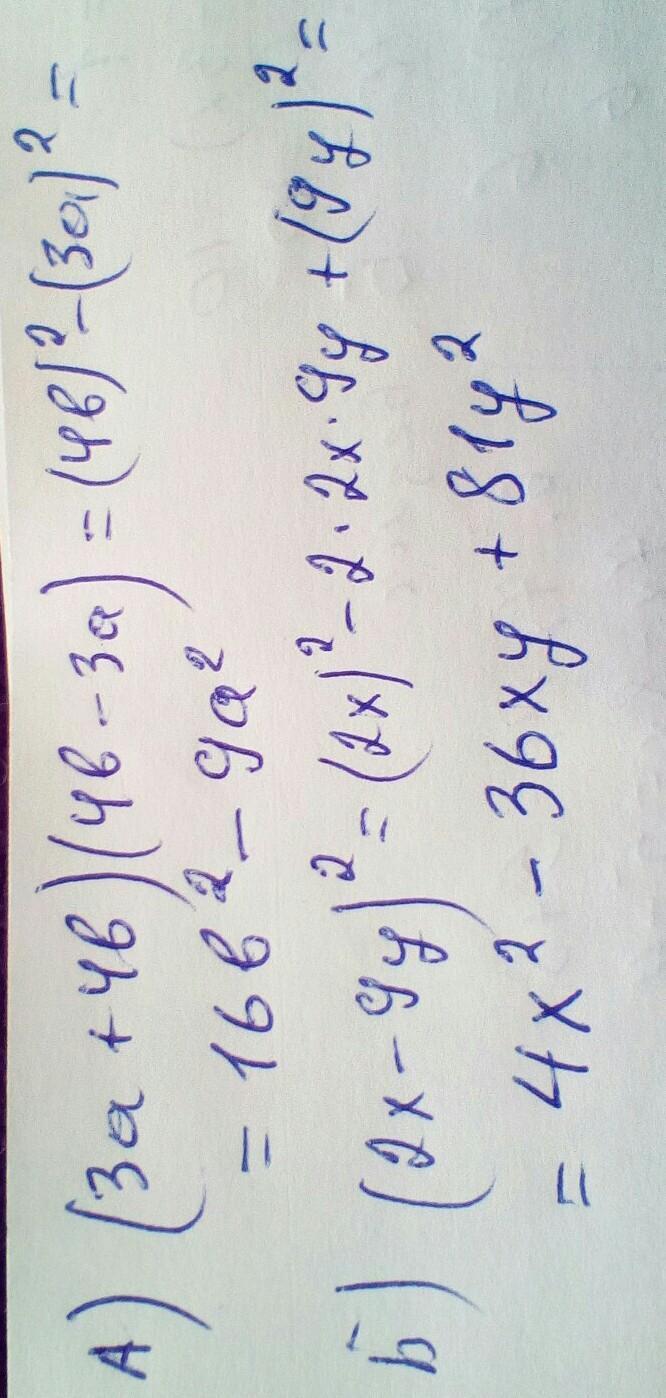 А) (3a + 4в)(4в - 3a) = (4в)² - (3a)² =
= 16в² - 9a²
Б) (2x - 9y)² = (2x)² - 2 · 2x · 9y + (9y)² =
= 4x² - 36xy + 81y²